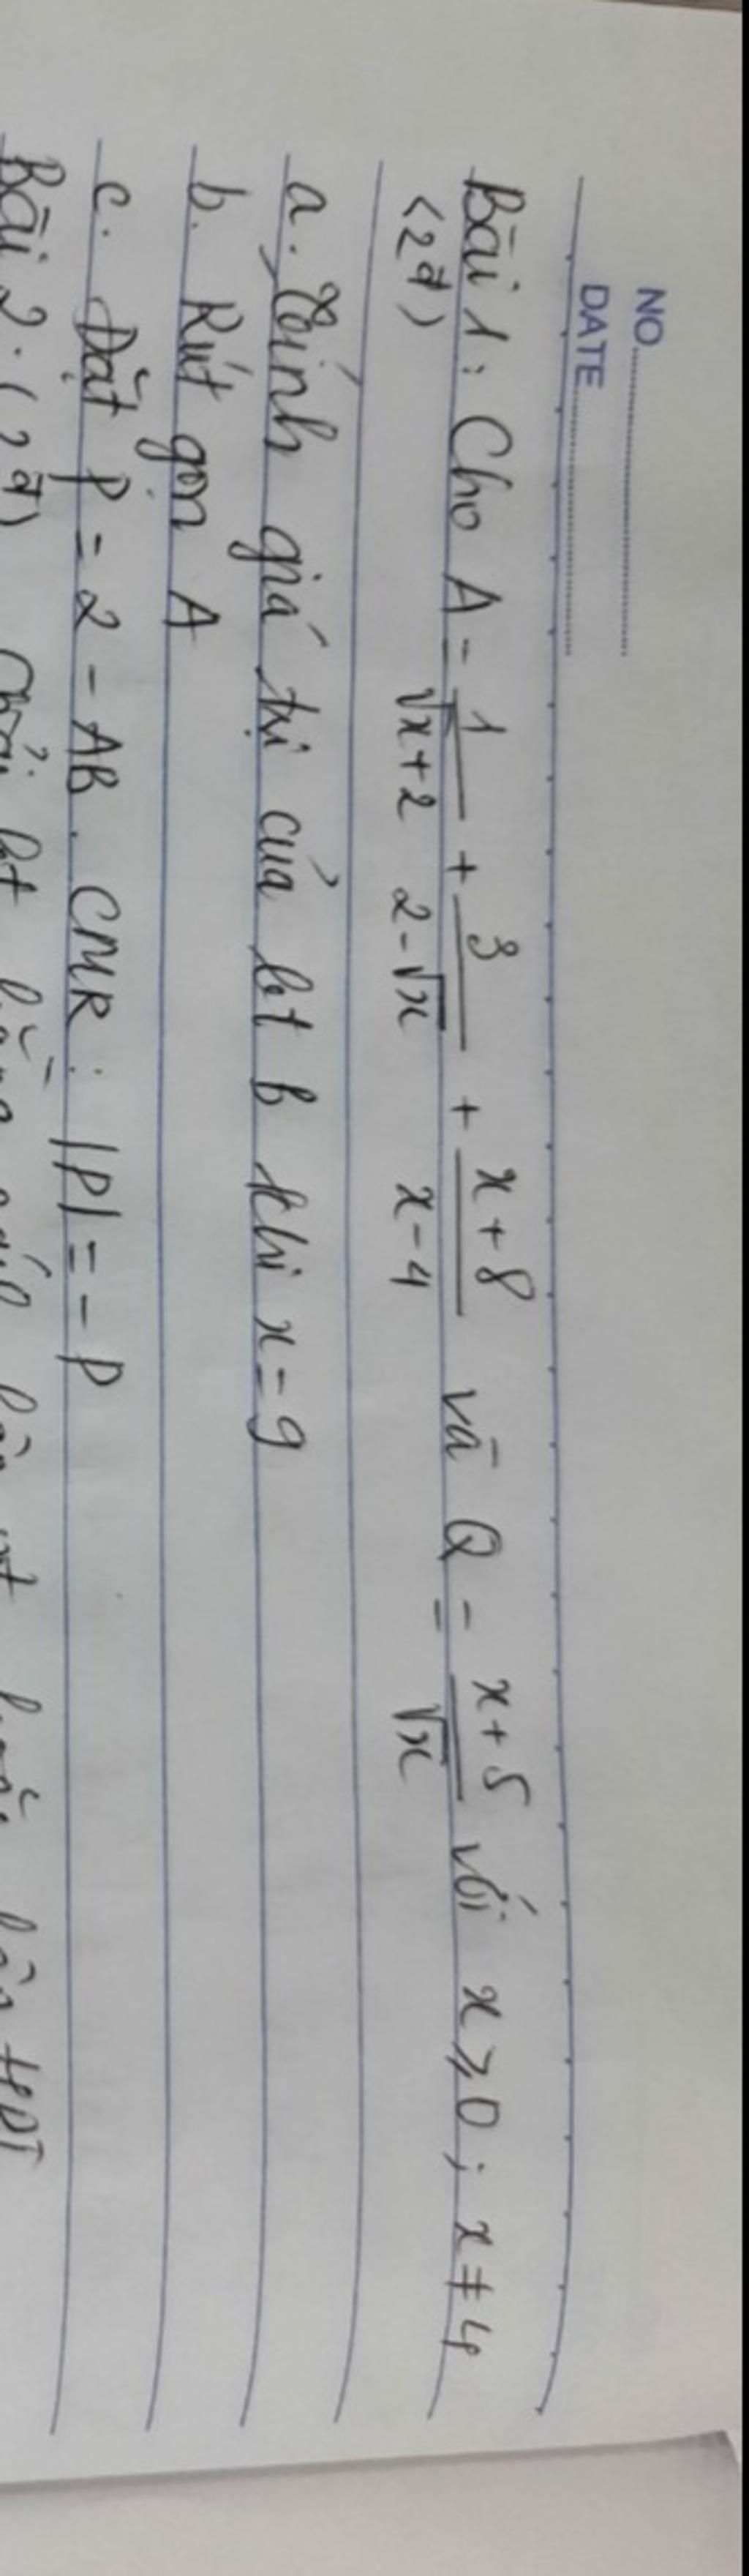 NO.
DATE
Bài 1: Cho A = 1/(√x+2) + 3/(2-√x) + (x+8)/(x-4) và Q = (x+5)/√x với x ⩾ 0; x ≠ 4
(2đ)
a. Tính giá trị của bt B khi x = 9
b. Rút gọn A
c. Đặt P = 2 - AB. CMR: |P| = -P
Bài 2. (2đ)